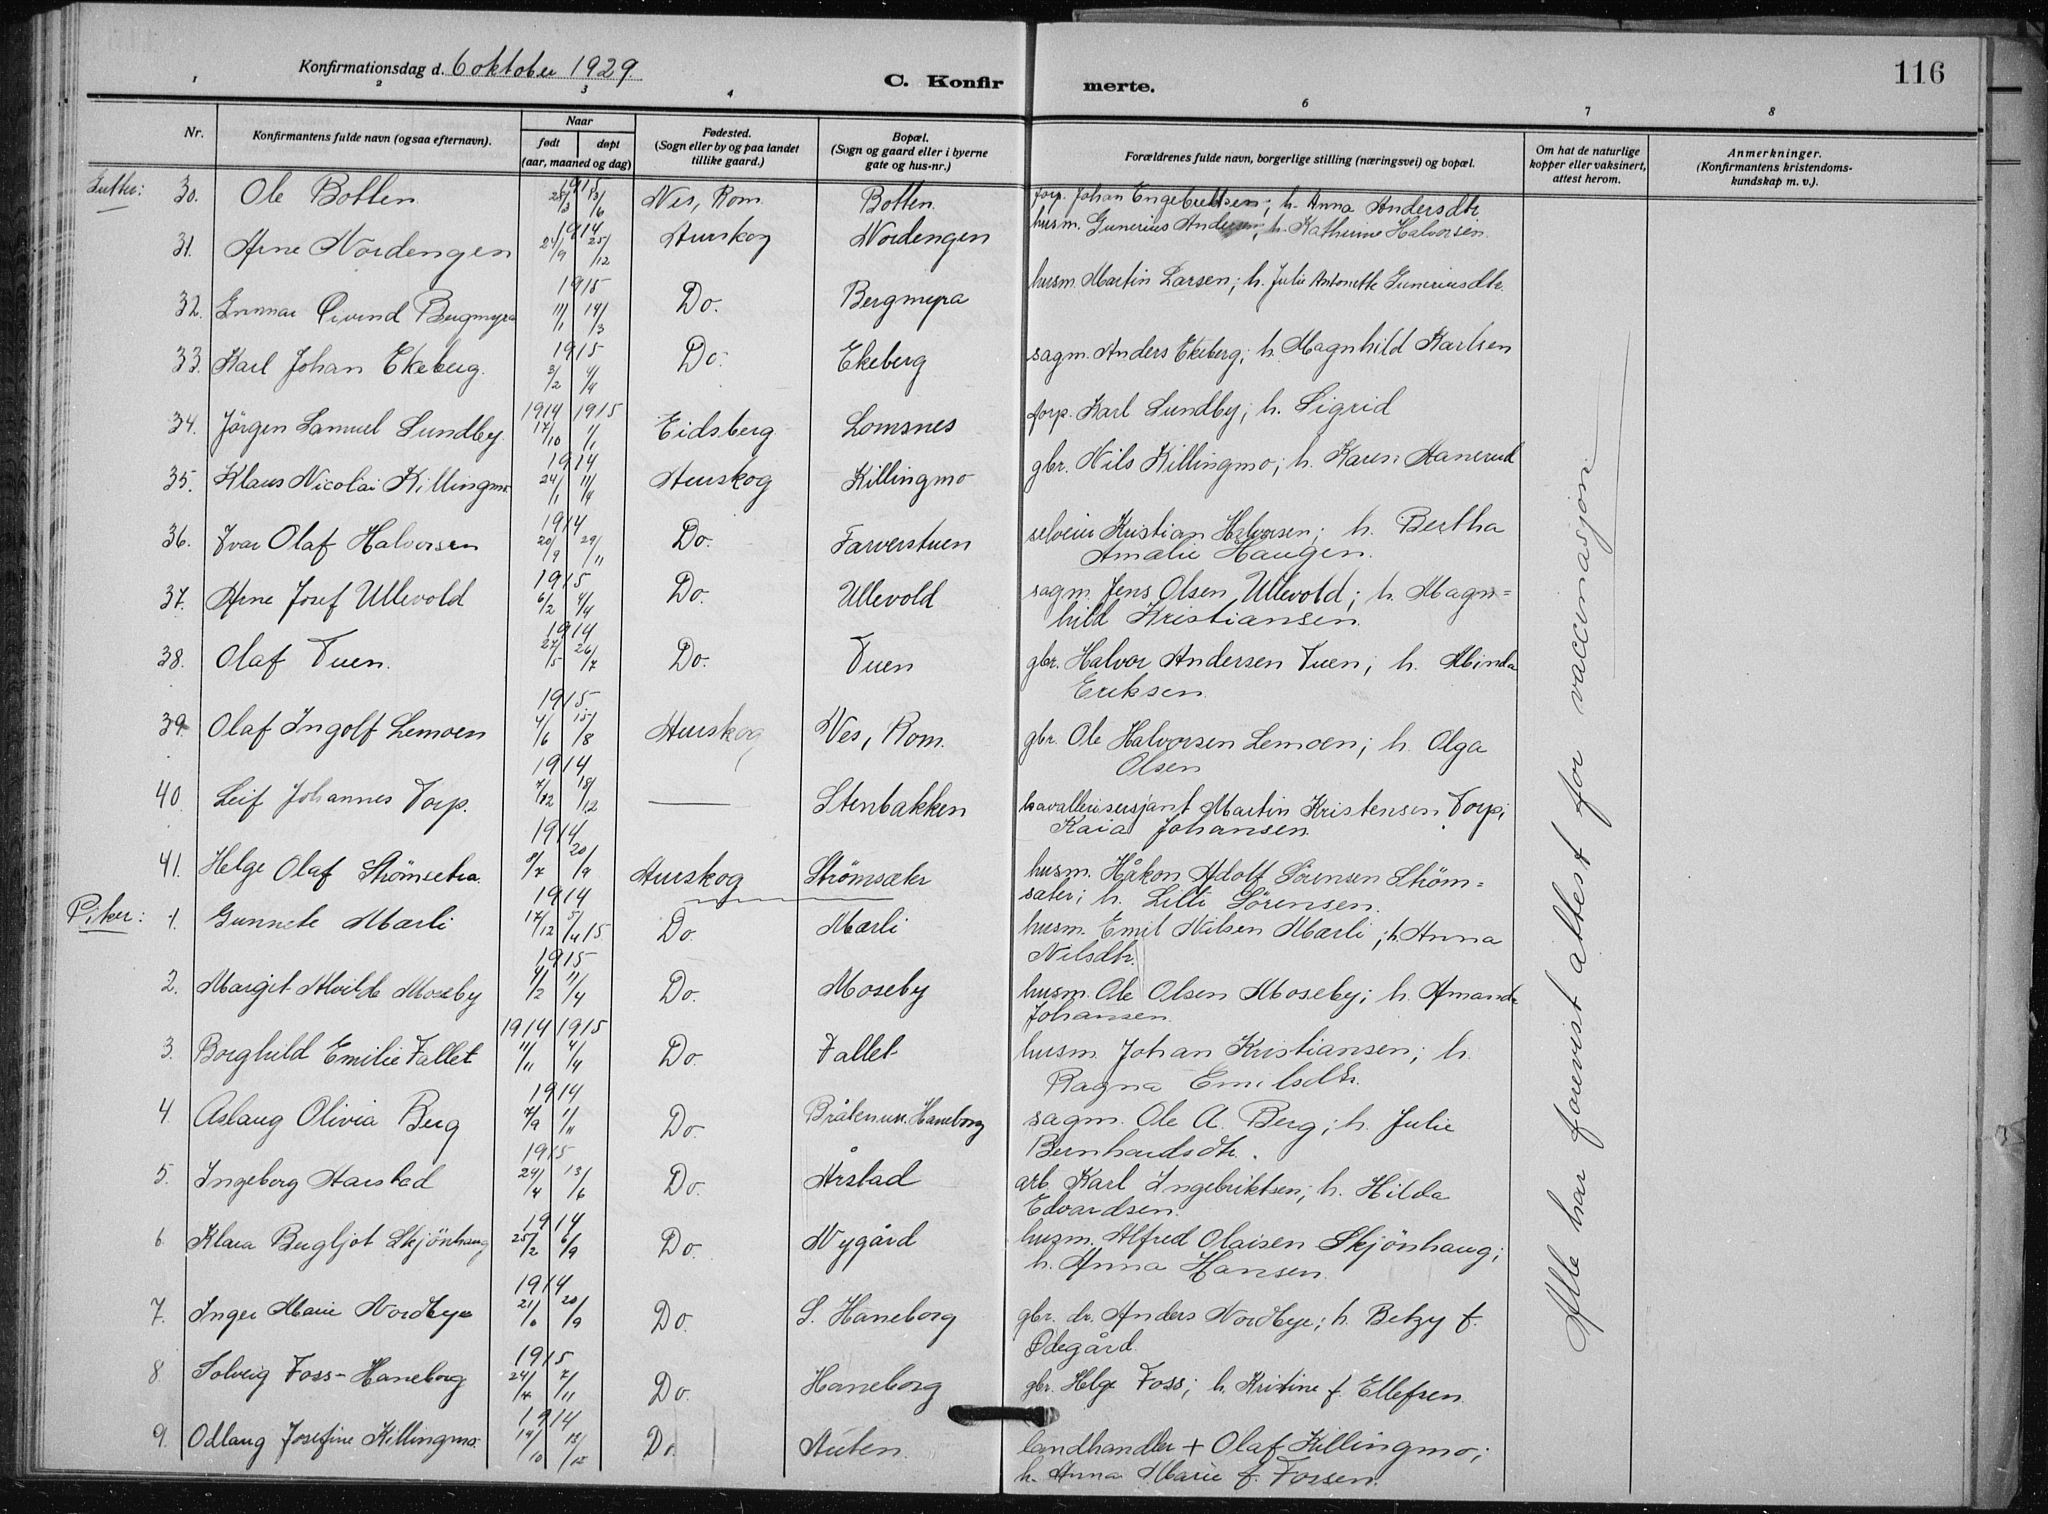 116
Konfirmationsdag d. 6 oktober 1929
C. Konfirmerte.
1 2 3 4 6 7 8
Nr.
Konfirmantens fulde navn (ogsaa efternavn).
Naar
født døpt
(aar, maaned og dag)
Fødested.
(Sogn eller by og paa landet
tillike gaard.)
Bopæl.
(Sogn og gaard eller i byerne
gate og hus-nr.)
Forældrenes fulde navn, borgerlige stilling (næringsvei) og bopæl.
Om hat de naturlige
kopper eller vaksinert,
attest herom.
Anmerkninger.
(Konfirmantens kristendoms-
kundskap m. v.)
Gutter: 30. Ole Botten 1915 25/3 13/6 Nes, Rom. Botten. forp. Johan Engebretsen; h. Anna Andersdtr
31. Arne Nordengen 1914 24/9 25/12 Aurskog Nordengen husm. Gunerius Andersen; h. Kathrine Halvorsen
32. Gunnar Øivind Bergmyra 1915 11/1 14/3 Do. Bergmyra husm. Martin Larsen; h. Julie Antonette Guneriusdtr.
33. Karl Johan Ekeberg. 1915 3/2 4/4 Do. Ekeberg sagm. Anders Ekeberg; h. Magnhild Karlsen
34. Jörgen Samuel Sundby 1914 1915 17/10 1/1 Eidsberg Lomsnes forp. Karl Sundby; h. Sigrid
35. Klaus Nicolai Killingmo 1914 24/1 11/4 Aurskog Killingmo gbr. Nils Killingmo; h. Karen Aanerud
36. Ivar Olaf Halvorsen 1914 20/9 29/11 Do. Farverstuen selveier Kristian Halvorsen; h. Bertha
Amalie Haugen.
37. Arne Josef Ullevold 1915 6/2 4/4 Do. Ullevold sagm. Jens Olsen Ullevold; h. Magn=
hild Kristiansen.
38. Olaf Tuen. 1914 27/5 26/7 Do. Tuen gbr. Halvor Andersen Tuen; h. Minda
Eriksen.
39. Olaf Ingolf Lemoen 1915 4/6 15/8 Aurskog Nes, Rom. gbr. Ole Halvorsen Lemoen; h. Olga
Olsen
40. Leif Johannes Torp. 1914 18/12 — Stenbakken kavallerisersjant Martin Kristensen Torp;
Kaia Johansen
41. Helge Olaf Strömsetra. 1914 8/7 20/9 Aurskog Strömsæter husm. Håkon Adolf Sörensen Ström=
sæter; h. Lilli Sörensen.
Piker: 1. Gunnete Mærli 1914 17/12 5/4 15 Do. Mærli husm. Emil Nilsen Mærli; h. Anna
Nilsdtr.
2. Margit Alvilde Moseby 1915 11/4 Do. Moseby husm. Ole Olsen Moseby; h. Amanda
Johansen.
3. Borghild Emilie Fallet 1914 1915 11/11 4/4 Do. Fallet husm. Johan Kristiansen; h.
Ragna Emilsdtr.
4. Aslaug Olivia Berg 1914 7/9 1/11 Do. Bråten un. Haneborg sagm. Ole A. Berg; h. Julie
Bernhardsdtr.
5. Ingeborg Aarstad 1915 24/4 13/6 Do. Årstad arb. Karl Ingebriktsen; h. Hilda
Edvardsen.
6. Klara Bergljot Skjönhaug 1914 25/2 6/9 Do. Nygård husm. Alfred Olaisen Skjönhaug;
h. Anna Hansen.
7. Inger Marie Nordbye 1914 21/6 20/9 Do. S. Haneborg gbr. dr. Anders Nordbye; h. Betzy f.
Ödegård
8. Solveig Foss-Haneborg 1915 24/4 7/11 Do. Haneborg gbr. Helge Foss; h. Kristine f. Ellefsen.
9. Odlaug Josefine Killingmo. 1914 14/10 Do. Auten. landhandler + Olaf Killingmo;
h. Anna Marie f. Fossen.
Alle har forevist attest for vaccinasjon.